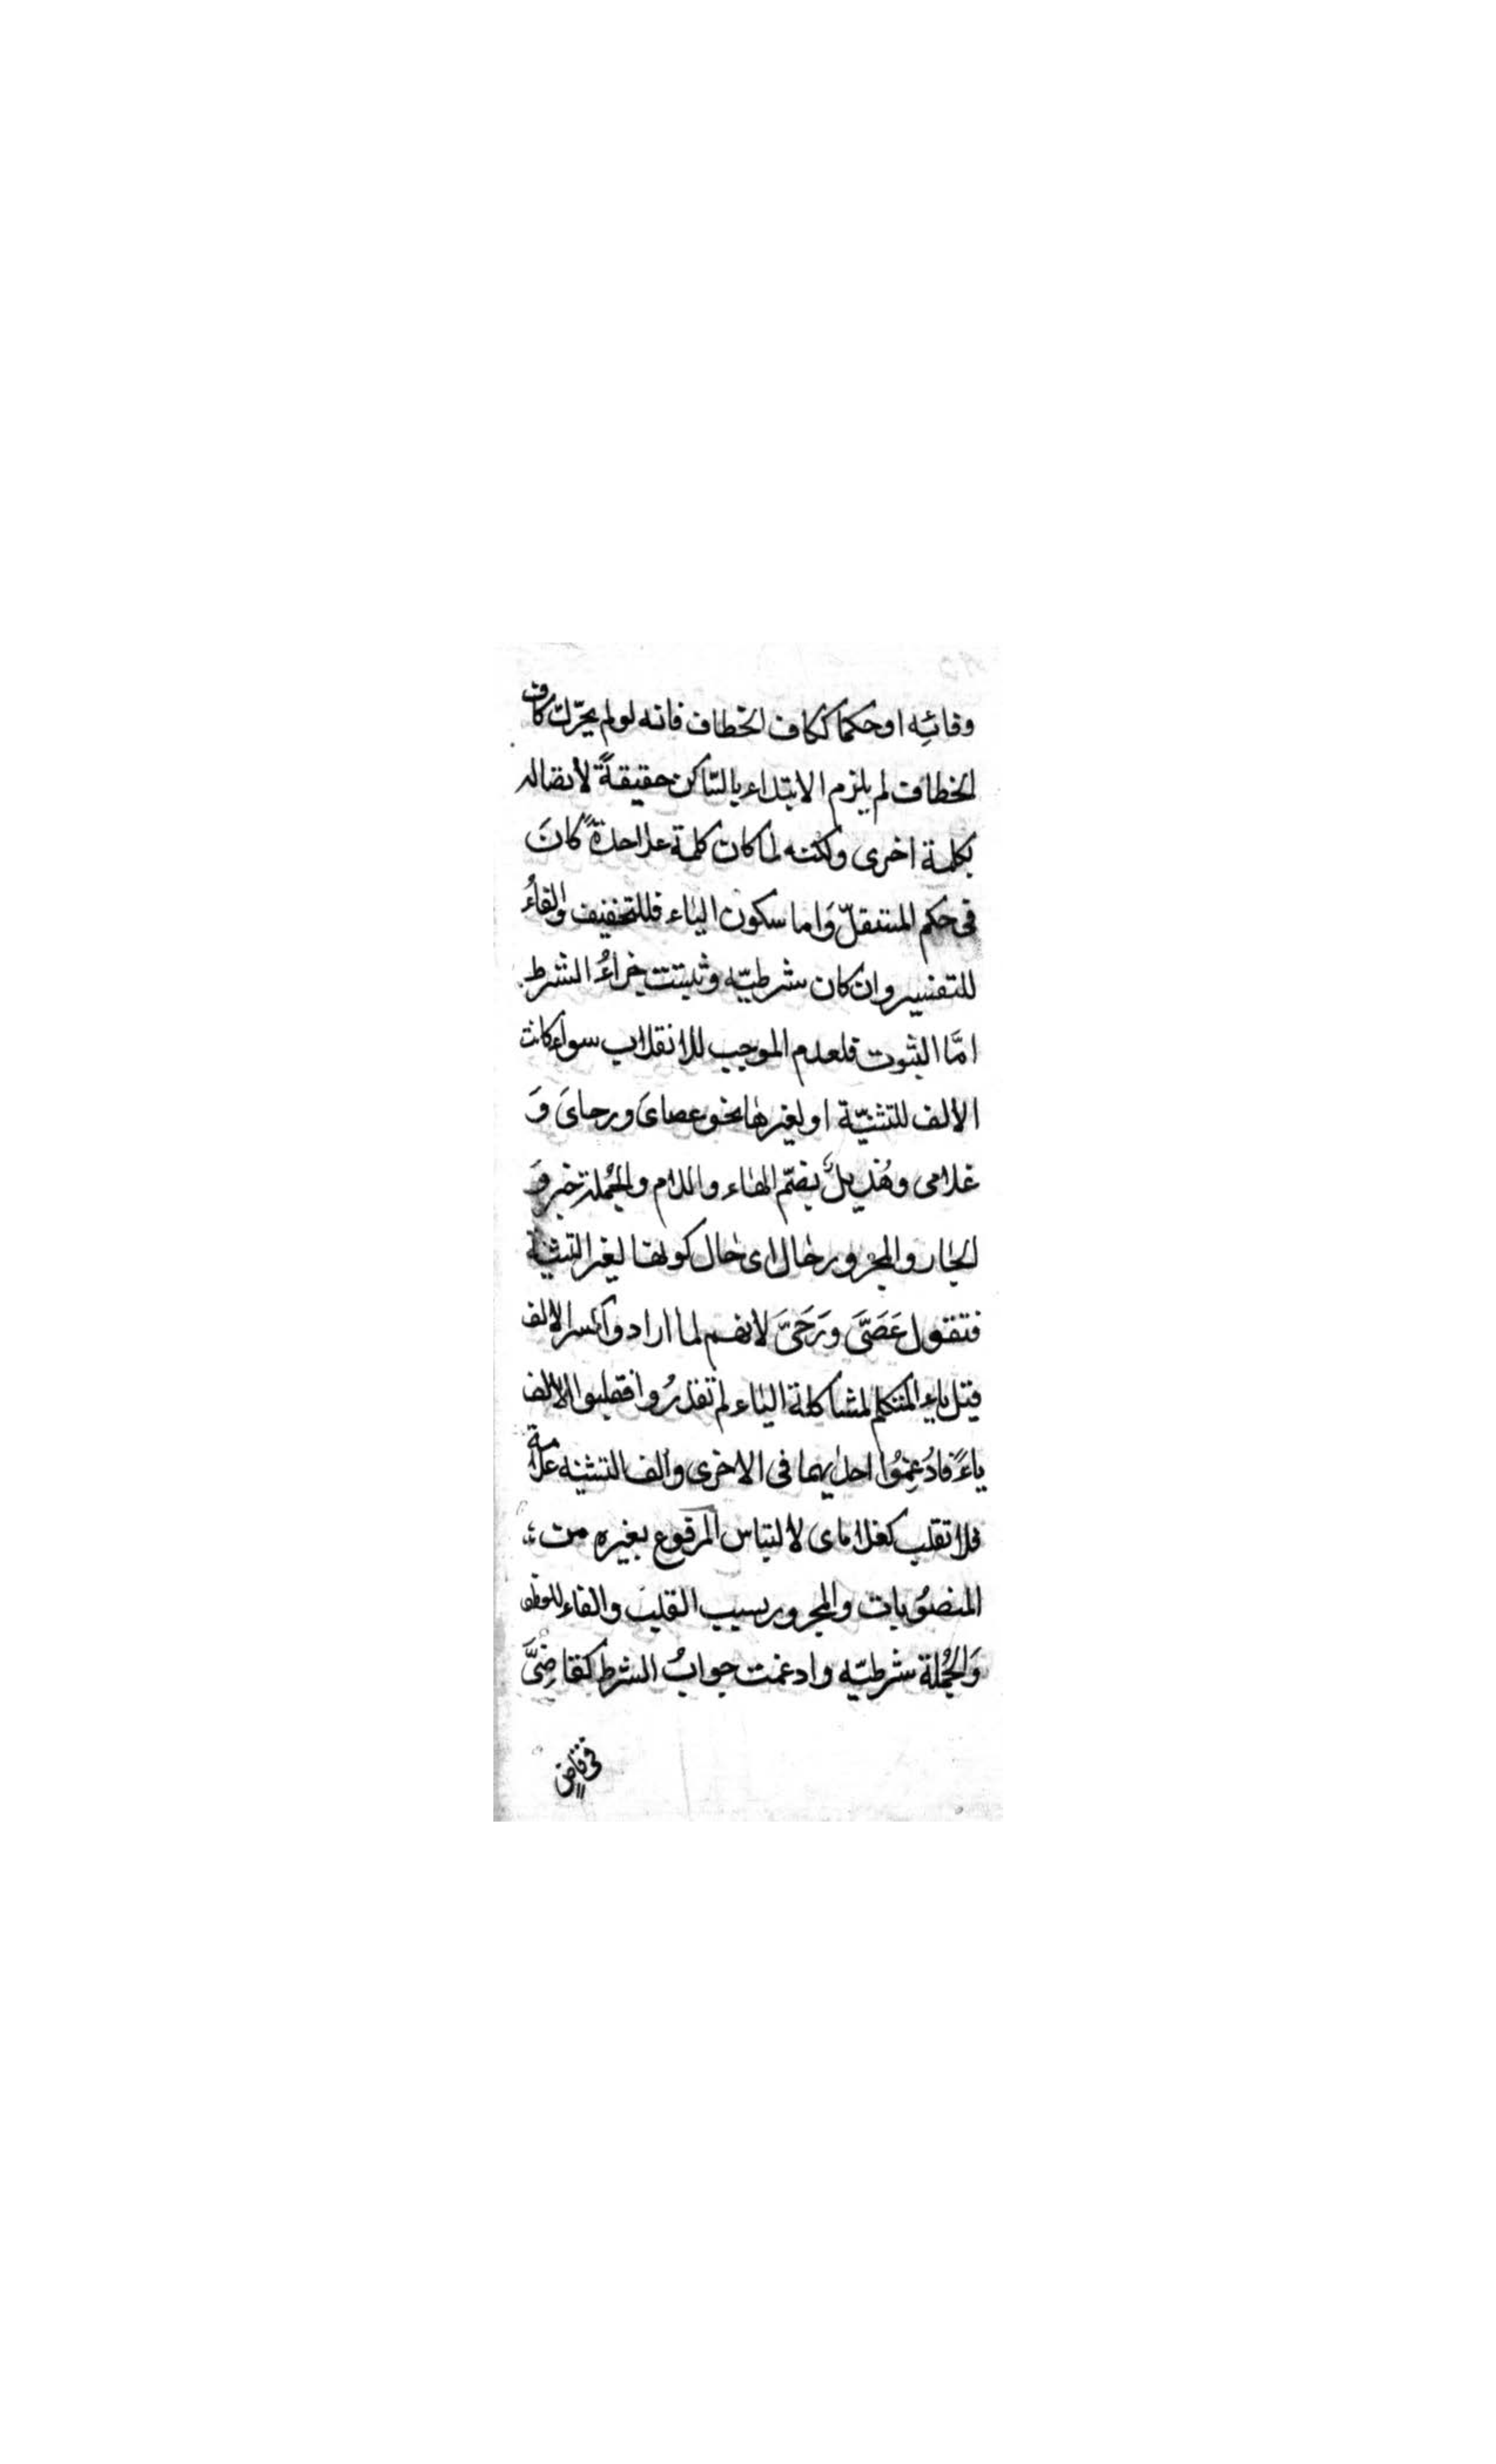 وفائه او حكما ككاف الخطاف فانه لو لم يحرّك كاف
الخطاف لم يلزم الابتداء بالسّاكن حقيقةً لاتصاله
بكلمة اخرى ولكنه لما كان كلمة علاحدةً كانَ
فى حكم المستقلّ وَاما سكون الياء فللتخفيف والفاءُ
للتفسير وان كان شرطيّه وثبتت جزاءُ الشرط
امَّا الثبوت فلعدم الموجب للانقلاب سواء كانت
الالف للتثنيّة او لغيرها نحو عصاىَ ورحاىَ وَ
غلامى وهُذيلٌ بضمّ الهاء واللام والجُملة خبر وَ
الجار والمجرور حال اى حال كونها لغير التثنية
فتقول عَصَىَّ ورَحَىَّ لانهم لما ارادوا كسر الالف
قبل ياء المتكلم لمشاكلة الياء لم تقذرُوا فقلبوا الالف
ياءً فادُغِمُوا احديهما فى الاخرى والف التثنيه علامة
فلا تقلب كغلاماى لالتباس المرفوع بغيره من
المنصُوبات والمجرور بسبب القلب والفاء للعطف
وَالجُملة شرطيّه وادغمت جوابُ الشرط كقاضِىَّ
فى قاضى